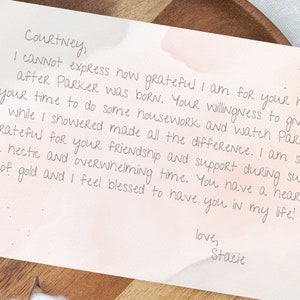 Courtney,
I cannot express how grateful I am for your
after Parker was born. Your willingness to
your time to do some housework and watch
while I showered made all the difference. I am
grateful for your friendship and support during
hectic and overwhelming time. You have a
of gold and I feel blessed to have you in my life!
love,
Stacie